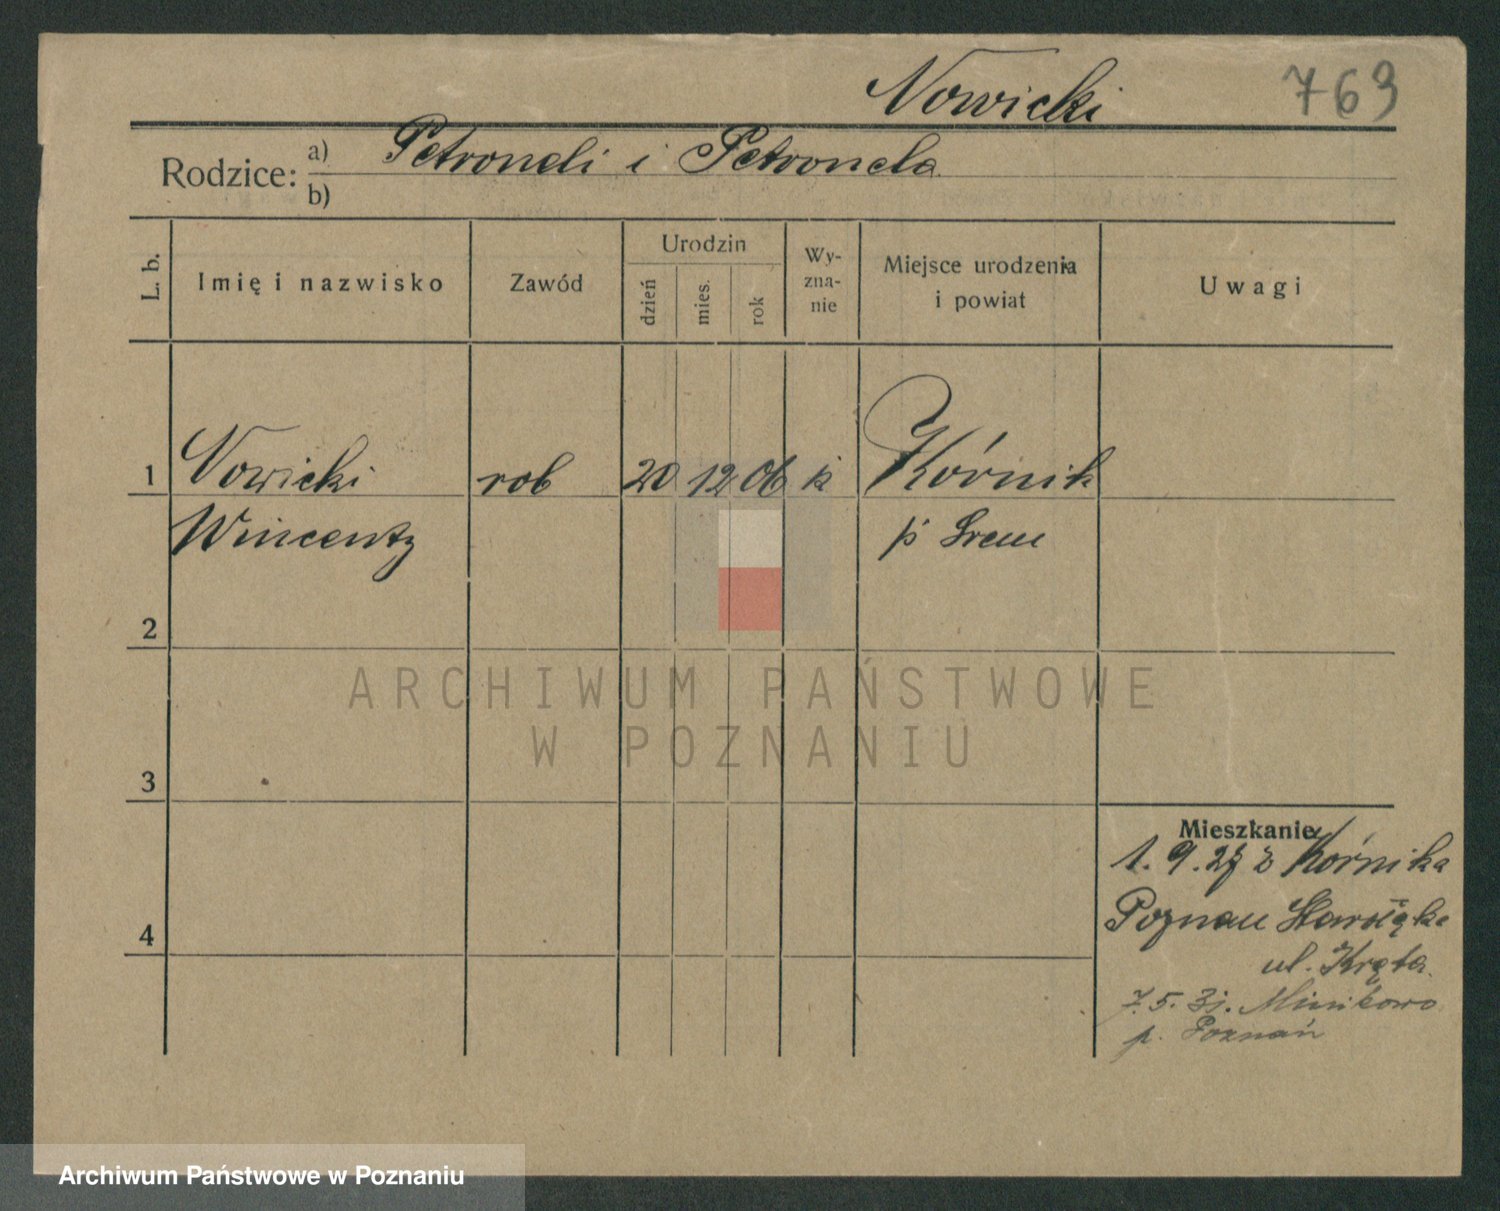 Nowicki 763
Rodzice: a) Petroneli i Petronela
b)
L. b. Imię i nazwisko Zawód Urodzin dzień mies. rok Wy-zna-nie Miejsce urodzenia i powiat Uwagi
1 Nowicki rob 20 12 06 k Kórnik
Wincenty p Srem
2
3
Mieszkanie
1. 9. 27 z Kórnika
4 Poznau Starołęka
ul. Kręta
7. 5. 31. Minikowo
p. Poznań
ARCHIWUM PAŃSTWOWE
W POZNANIU
Archiwum Państwowe w Poznaniu